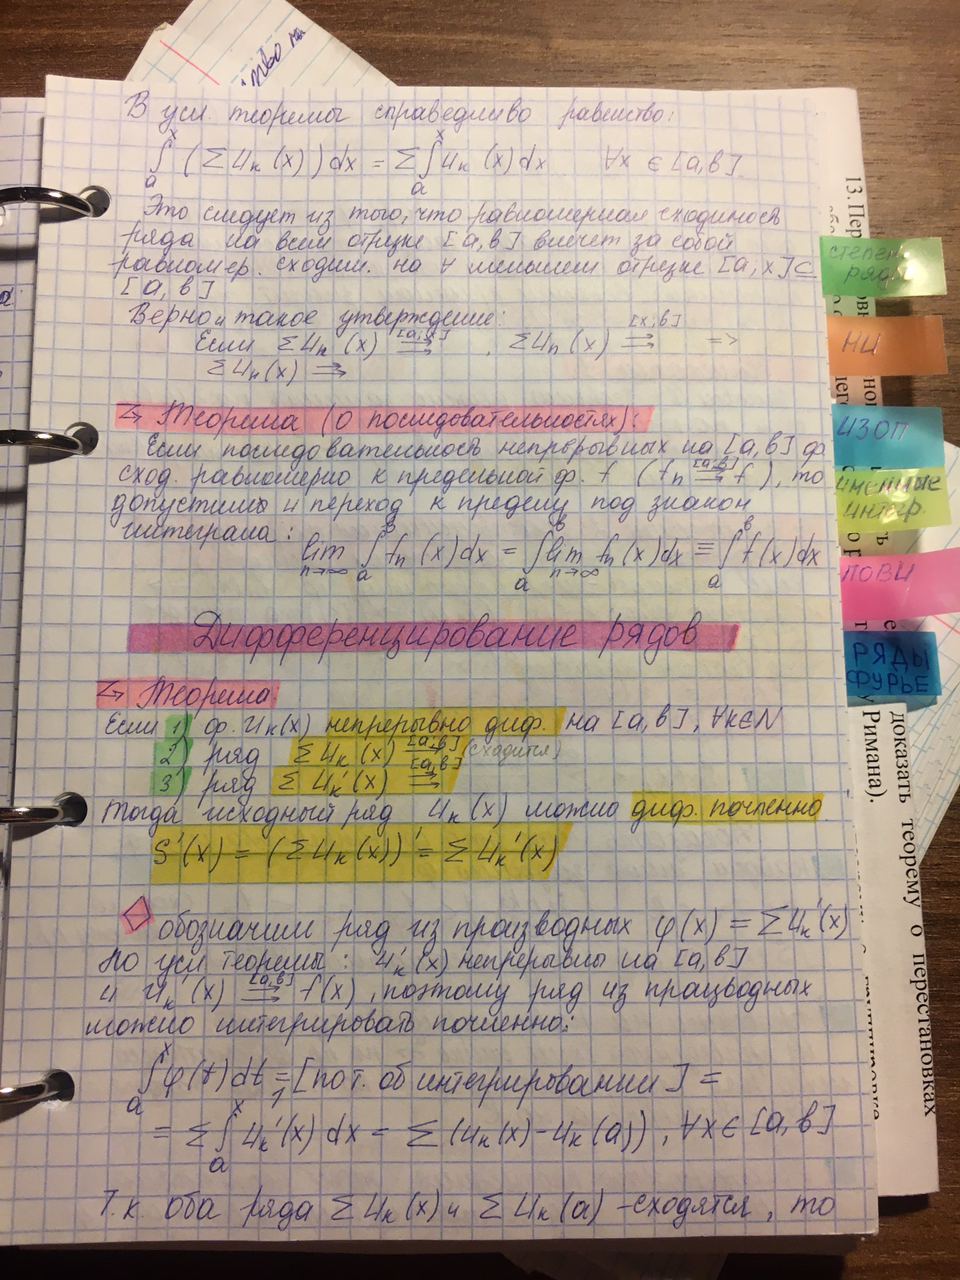 В усл. теоремы справедливо равенство:
∫ₐˣ (Σ Uₖ(x)) dx = Σ ∫ₐˣ Uₖ(x) dx ∀x ∈ [a,b]
Это следует из того, что равномерная сходимость
ряда на всем отрезке [a,b] влечет за собой
равномер. сходим. на ∀ меньшем отрезке [a,x] ⊂
[a,b]
Верно и такое утверждение:
Если ΣUₙ(x) ⇉ , ΣUₙ(x) ⇉ [x;b] =>
ΣUₙ(x) ⇉
Теорема (о последовательностях):
Если последовательность непрерывных на [a,b] ф.
сход. равномерно к предельной ф. f (fₙ ⇉ [a,b] f), то
допустим и переход к пределу под знаком
интеграла:
lim n→∞ ∫ₐᵇ fₙ(x)dx = ∫ₐᵇ lim n→∞ fₙ(x)dx ≡ ∫ₐᵇ f(x)dx
Дифференцирование рядов
Теорема:
Если 1) ф. Uₖ(x) непрерывно диф. на [a,b], ∀k∈N
2) ряд ΣUₖ(x) → [a,b] (сходится)
3) ряд ΣUₖ'(x) ⇉ [a,b]
Тогда исходный ряд Uₖ(x) можно диф. почленно
S'(x) = (ΣUₖ(x))' = ΣUₖ'(x)
обозначим ряд из производных φ(x) = ΣUₖ'(x)
По усл теоремы: Uₖ'(x) непрерывны на [a,b]
и Uₖ'(x) ⇉ [a,b] f(x), поэтому ряд из працводных
можно интегрировать почленно:
∫ₐˣ φ(t)dt = [по т. об интегрировании] =
= Σ ∫ₐˣ Uₖ'(x) dx = Σ (Uₖ(x) - Uₖ(a)), ∀x ∈ [a,b]
Т.к. оба ряда ΣUₖ(x) и ΣUₖ(a) - сходятся, то
ряды
НИ
ИЗОП
интегр.
ПОВИ
РЯДЫ
ФУРЬЕ
13. Пер
доказать теорему о перестановках
Римана).